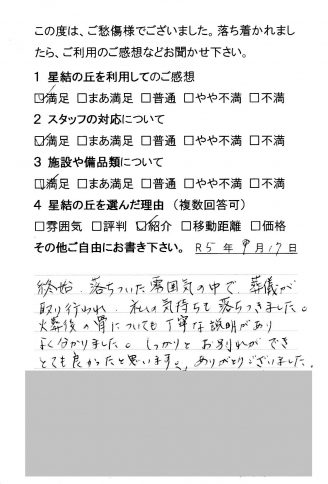 この度は、ご愁傷様でございました。落ち着かれまし
たら、ご利用のご感想などお聞かせ下さい。
1 星結の丘を利用してのご感想
☑満足 □まあ満足 □普通 □やや不満 □不満
2 スタッフの対応について
☑満足 □まあ満足 □普通 □やや不満 □不満
3 施設や備品類について
☑満足 □まあ満足 □普通 □やや不満 □不満
4 星結の丘を選んだ理由 (複数回答可)
□雰囲気 □評判 ☑紹介 □移動距離 □価格
その他ご自由にお書き下さい。 R5年9月17日
終始、落ちついた雰囲気の中で、葬儀が
取り行われ、私の気持ちも落ちつきました。
火葬後の骨についても丁寧な説明があり
よく分かりました。しっかりとお別れができ
とても良かったと思います。ありがとうございました。